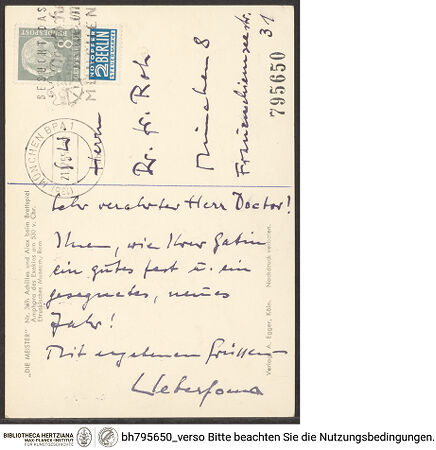 BESUCHT DAS
MÜNCHEN
8
DEUTSCHE BUNDESPOST
NOTOPFER
2 BERLIN
STEUERMARKE
MÜNCHEN BPA 1
Herrn
Dr. Fr. Roh
München 8
Frauenchiemseestr.
31
795650
Sehr verehrter Herr Doctor!
Ihnen, wie Ihrer Gattin
ein gutes Fest u. ein
gesegnetes, neues
Jahr!
Mit ergebenen Grüssen
"DIE MEISTER" Nr. 369 Achilles und Aiax beim Brettspiel
Amphora des Exekias um 530 v. Chr.
Etruskisches Museum, Rom
Verlag A. Egger, Köln. Nachdruck verboten.
BIBLIOTHECA HERTZIANA
MAX-PLANCK-INSTITUT
FÜR KUNSTGESCHICHTE
bh795650_verso Bitte beachten Sie die Nutzungsbedingungen.